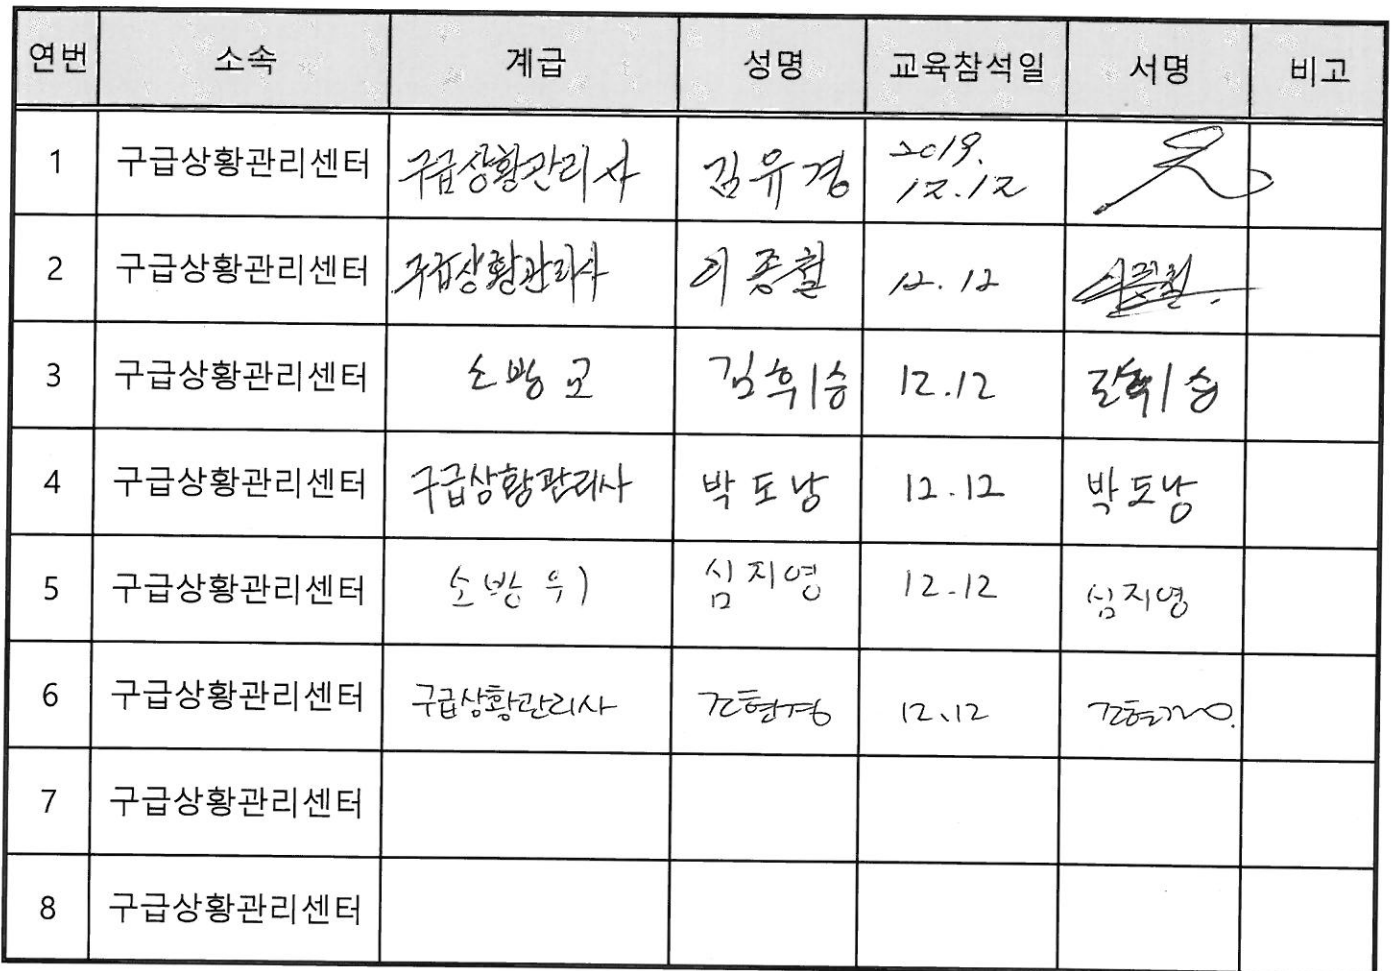 연번 소속 계급 성명 교육참석일 서명 비고
1 구급상황관리센터 구급상황관리사 김유경 2019. 12.12
2 구급상황관리센터 구급상황관리사 이종철 12.12 이종철
3 구급상황관리센터 소방교 김휘승 12.12 김휘승
4 구급상황관리센터 구급상황관리사 박도낭 12.12 박도낭
5 구급상황관리센터 소방위 심지영 12.12 심지영
6 구급상황관리센터 구급상황관리사 조현경 12.12
7 구급상황관리센터
8 구급상황관리센터